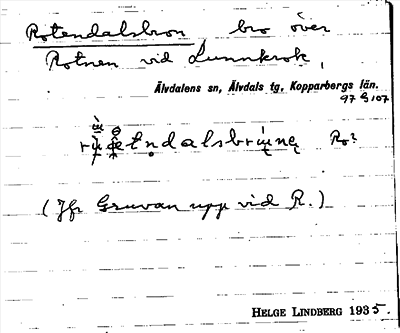 Rotendalsbron, bro över
Rotnen vid Lunnkrok,
Älvdalens sn, Älvdals tg, Kopparbergs län.
97 G 107
Ro?
(Jfr Gruvan upp vid R.)
HELGE LINDBERG 1935.